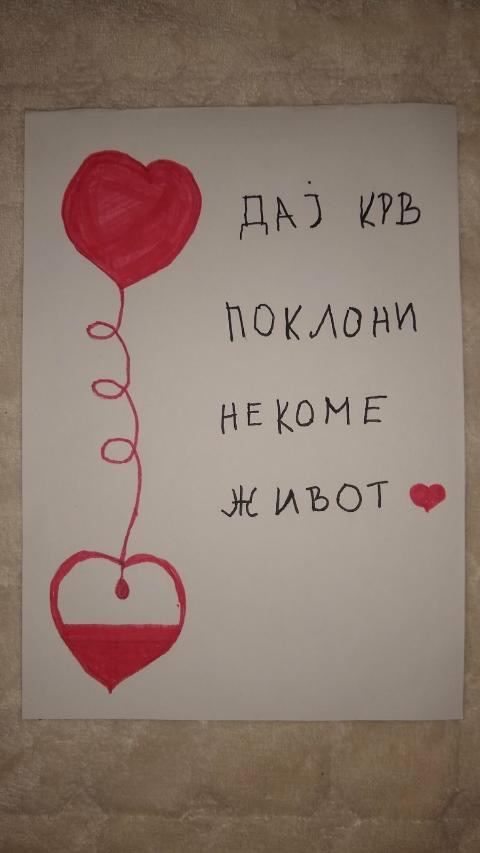 ДАЈ КРВ
ПОКЛОНИ
НЕКОМЕ
ЖИВОТ